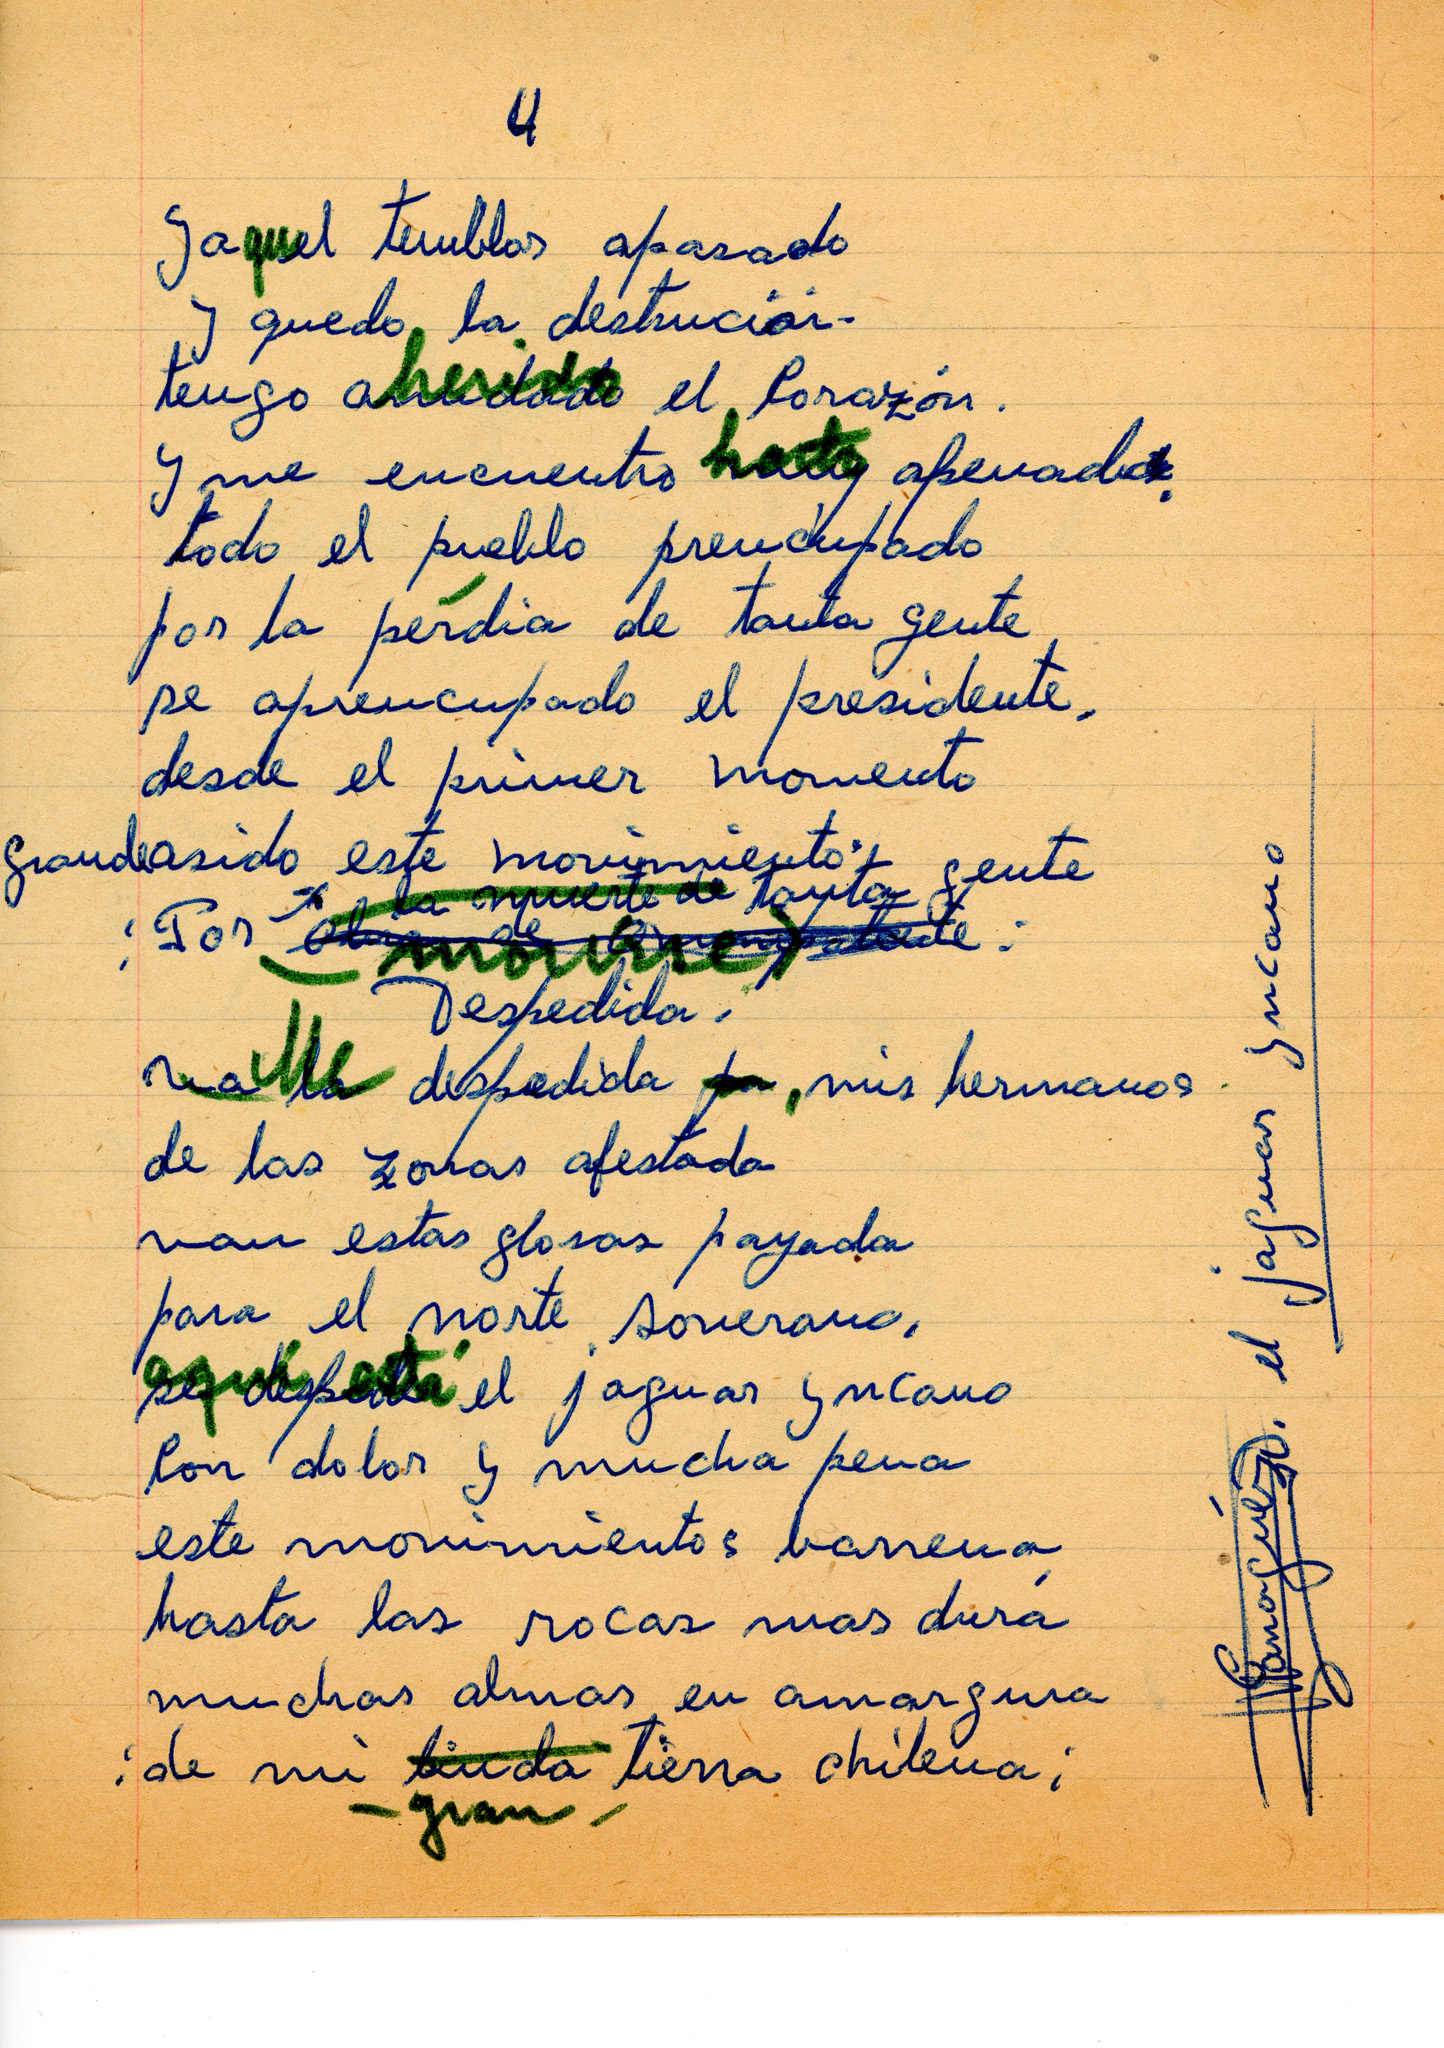 4
Yaquel temblor apasado
y quedo la destrución-
tengo herido el Corazón.
y me encuentro harto apenado.
todo el pueblo preucupado
por la pérdia de tanta gente
se apreucupado el presidente.
desde el primer momento
grande asido este movimiento.
la muerte de tanta gente
¡Por morirse)
Despedida.
Va lla despedida, mis hermanos.
de las zonas afestada
van estas glosas payada
para el norte soverano.
aquí está el jaguar yncano
Con dolor y mucha pena
este movimientos barrena
hasta las rocas mas durá
muchas almas en amargura
¡de mi linda tierra chilena¡
- gran -
el jaguar yncano